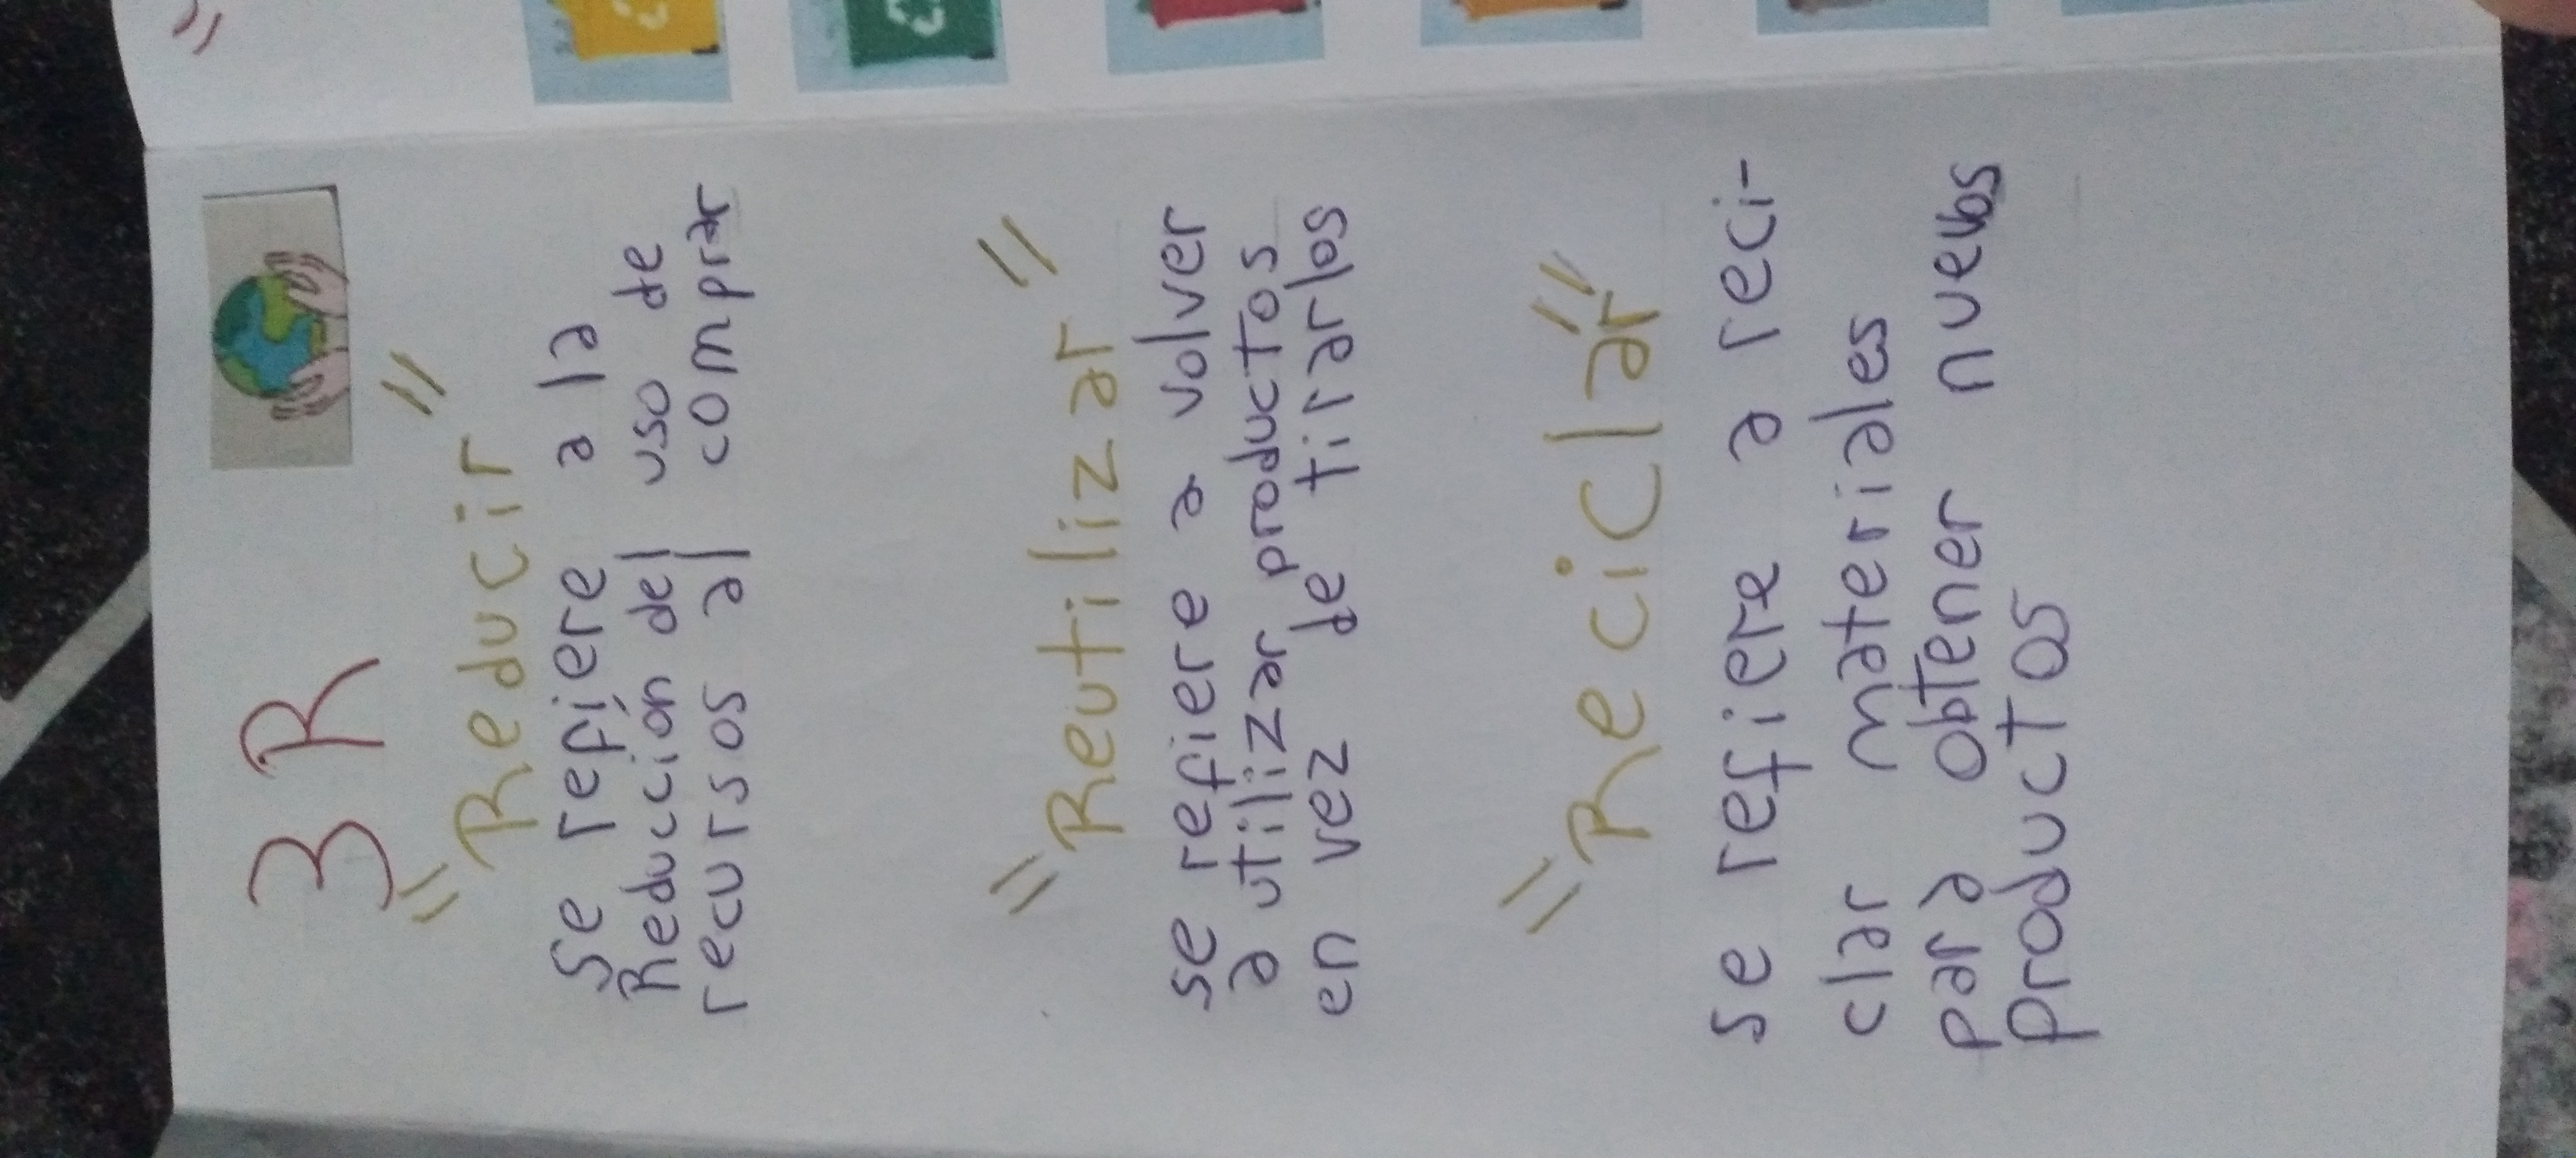 3 R
"Reducir"
Se refiere a la
Reducción del uso de
recursos al comprar
"Reutilizar"
se refiere a volver
a utilizar productos
en vez de tirarlos
"Reciclar"
se refiere a reci-
clar materiales
para obtener nuevos
productos